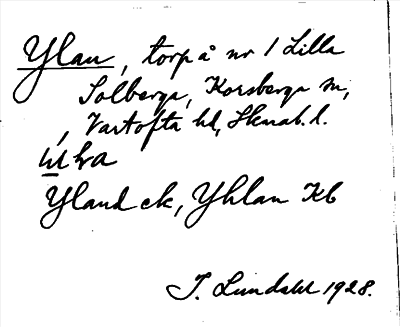 Ylan, torp å nr 1 Lilla
Solberga, Korsberga sn,
Vartofta hd, Skarab. l.
Yland ek, Yhlan Kb
J. Lundahl 1928.